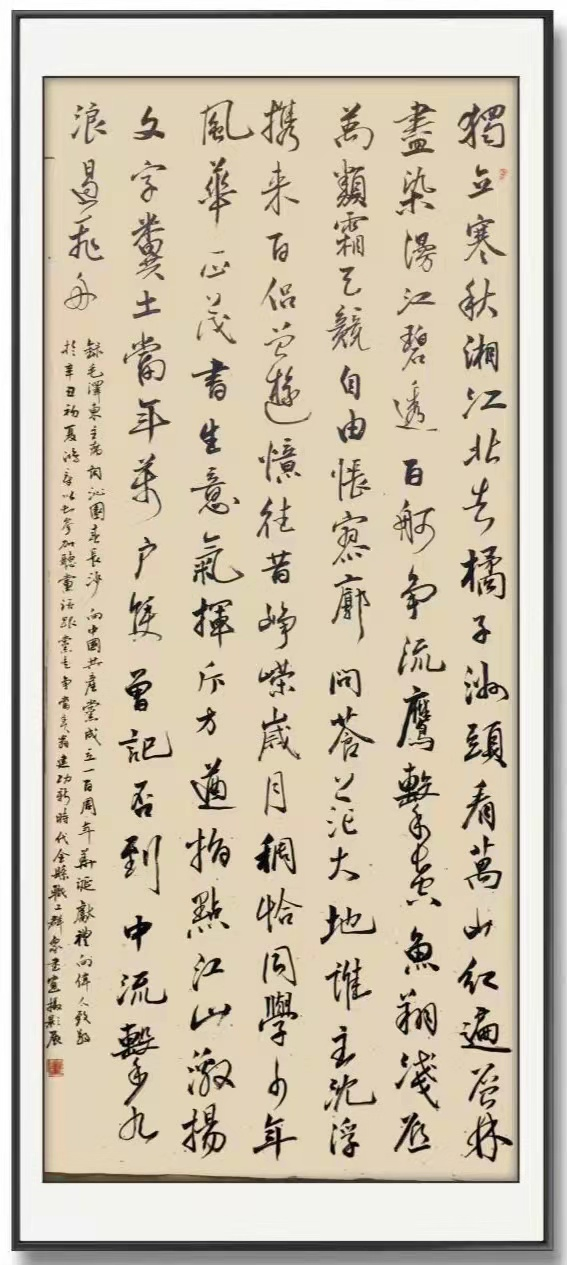 獨立寒秋湘江北去橘子洲頭看萬山紅遍層林
盡染漫江碧透百舸争流鷹擊長空魚翔淺底
萬類霜天競自由悵寥廓問蒼茫大地誰主沈浮
携来百侣曾遊憶往昔崢嶸歲月稠恰同學少年
風華正茂書生意氣揮斥方遒指點江山激揚
文字糞土當年萬户侯曾記否到中流擊水
浪遏飛舟
録毛澤東主席詞沁園春長沙 向中國共産黨成立一百周年華誕獻禮向偉人致敬
於辛丑初夏鴻以書參加聽黨話跟黨走争當建功新時代全縣職工群衆書畫攝影展